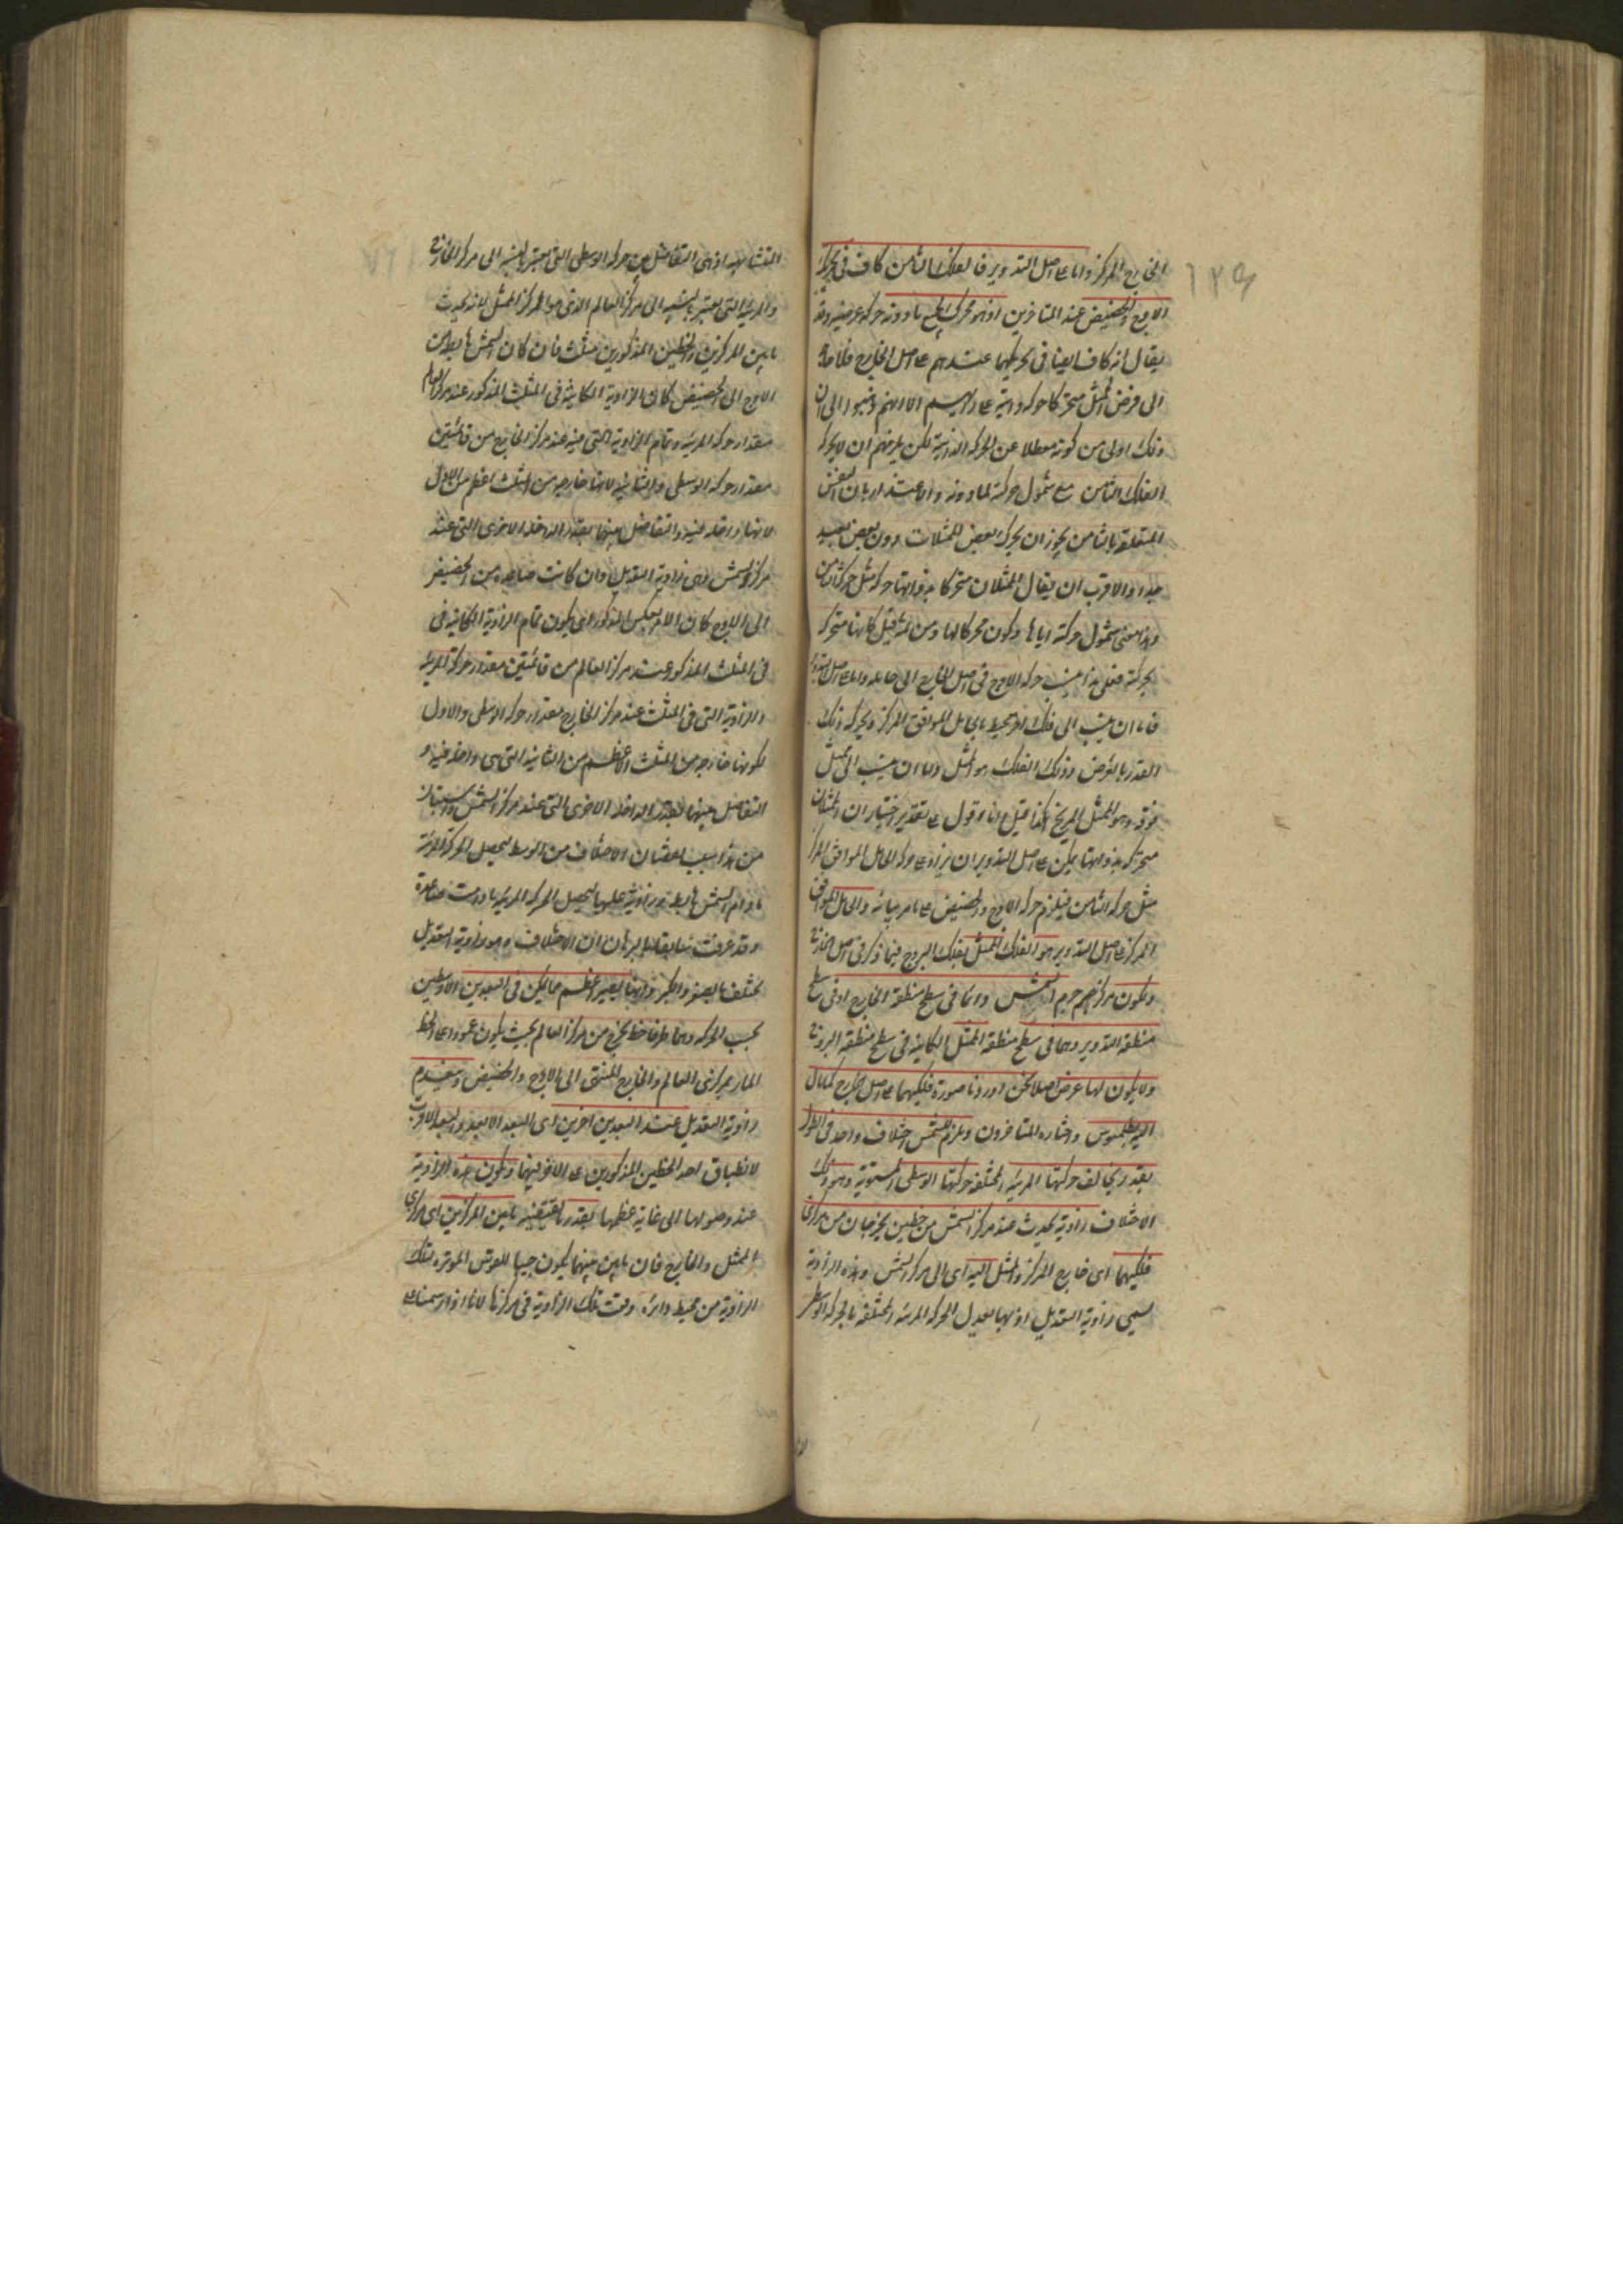 الخارج المركز واما على اصل التدوير فالفلك الثامن كاف في تحريك
الاوج والحضيض عند المتاخرين اذ هو محرك لجميع ما دونه حركة عرضية وقد
يقال انه كاف ايضا في تحريكهما عندهم على اصل الخارج فلا حاجة
الى فرض الممثل متحركا حركة ذاتية على رايهم الا انهم ذهبوا الى ان
ذلك اولى من كونه معطلا عن الحركة الذاتية لكن يلزمهم ان لا يحرك
الفلك الثامن مع شمول حركته لما دونه والاعتذار بان النفس
المتعلقة بالثامن يجوز ان يحرك بعض الممثلات دون بعض بعيد
جدا والاقرب ان يقال الممثلات متحركة بذواتها حركة مثل حركة الثامن
وهذا معنى شمول حركته اياها وكون محركا لها ومن ثمة قيل كانها متحركة
بحركته فعلى هذا ينسب حركة الاوج في اصل الخارج الى حامله واما على اصل التدوير
فاما ان ينسب الى فلك اخر محيط بالحامل الموافق المركز ويحركه ذلك
القدر بالعرض وذلك الفلك هو الممثل واما ان ينسب الى ممثل
فوقه وهو الممثل المريخ كذا قيل وانا اقول على تقدير اختيار ان الممثلات
متحركة بذواتها يمكن على اصل التدوير ان يزاد على حركة الحامل الموافق المركز
مثل حركة الثامن فيلزم حركة الاوج والحضيض على ما مر بيانه والحامل الموافق
المركز على اصل التدوير هو الفلك الممثل بفلك البروج فيما ذكر في اصل الخارج
ويكون مركز جرم الشمس دائما في سطح منطقة الخارج او في سطح
منطقة التدوير وهما في سطح منطقة الممثل الكائنة في سطح منطقة البروج
ولا يكون لها عرض اصلا لكن اوردنا صورة فلكيهما على اصل الخارج كما مال
اليه بطلميوس واختاره المتاخرون ويلزم للشمس اختلاف واحد في الطول
بقدر يخالف حركتها المرئية المختلفة حركتها الوسطى المستوية وهو ذلك
الاختلاف زاوية تحدث عند مركز الشمس من خطين يخرجان من مركزي
فلكيهما اى خارج المركز والممثل اليه اى الى مركز الشمس وهذه الزاوية
تسمى زاوية التعديل اذ بها تعدل الحركة المرئية المختلفة بالحركة الوسطى
المتشابهة اذ هى التفاضل بين حركة الوسطى التى تعتبر بالنسبة الى مركز الخارج
والمرئية التى تعتبر بالنسبة الى مركز العالم الذى هو المركز الممثل لانه يحدث
ما بين المركزين والخطين المذكورين مثلث فان كان الشمس هابطة من
الاوج الى الحضيض كان الزاوية الكائنة في المثلث المذكور عند مركز العالم
مقدار حركة المرئية وتمام الزاوية التى فيه عند مركز الخارج من قائمتين
مقدار حركة الوسطى والثانية لانها خارجة من المثلث اعظم من الاولى
لانها داخلة فيه والتفاضل بينهما بقدر الداخلة الاخرى التى عند
مركز الشمس وهى زاوية التعديل وان كانت صاعدة من الحضيض
الى الاوج كان الامر بعكس المذكور اى يكون تمام الزاوية الكائنة في
في المثلث المذكور عند مركز العالم من قائمتين مقدار حركة المرئية
والزاوية التى في المثلث عند مركز الخارج مقدار حركة الوسطى والاول
لكونها خارجة من المثلث اعظم من الثانية التى هى داخلة فيه و
التفاضل بينهما بقدر الداخلة الاخرى التى عند مركز الشمس
من هذا سبب نقصان الاختلاف من الوسط ليحصل الحركة المرئية
ما دام الشمس هابطة وزاويته عليها ليحصل الحركة المرئية ما دامت صاعدة
وقد عرفت سابقا بالبرهان ان الاختلاف وهو زاوية التعديل
تختلف بالصغر والكبر وانها يصير اعظم ما يمكن في البعدين الاوسطين
بحسب الحركة وهما طرفا خط يخرج من مركز العالم بحيث يكون عمودا على الخط
المار بمركزى العالم والخارج المنتهى الى الاوج والحضيض وينعدم
زاوية التعديل عند البعدين اخرين اى البعد الابعد والبعد الاقرب
لانطباق احد الخطين المذكورين على الاخر فيهما ويكون هذه الزاوية
عند وصولها الى غاية عظمها بقدر ما يقتضيه ما بين المركزين اى مركزى
الممثل والخارج فان ما بين بينهما يكون جيبا للقوس الموترة لتلك
الزاوية من محيط دائرة وقعت تلك الزاوية في مركزها لانا اذا رسمنا على